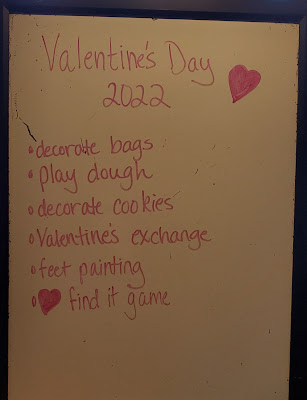 Valentine's Day
2022
• decorate bags
• play dough
• decorate cookies
• Valentine's exchange
• feet painting
• ♥ find it game